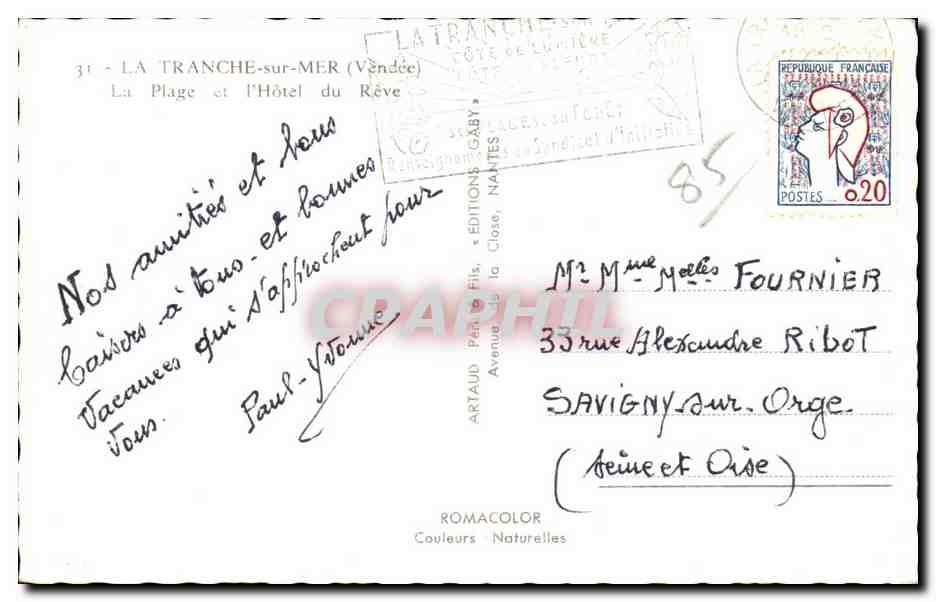 31 - LA TRANCHE-sur-MER (Vendée)
La Plage et l'Hôtel du Rêve
LA TRANCHE-SUR-
CÔTE DE LUMIÈRE
PLAGES
Renseignements au Syndicat d'Initiative
REPUBLIQUE FRANÇAISE
POSTES 0.20
85
Nos amitiés et bons
baisers à tous - et bonnes
vacances qui s'approchent pour
vous.
Paul-Yvonne
ARTAUD Père & Fils, « EDITIONS GABY »
Avenue de la Close, NANTES
CPAPHIL
Mr Mme Melles FOURNIER
33 rue Alexandre RiboT
SAVIGNY-sur-Orge
(Seine et Oise)
ROMACOLOR
Couleurs Naturelles